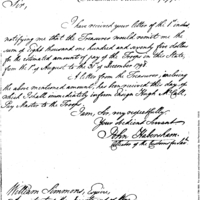 Sir,
I have received your letter of the
notifying me that the Treasurer would remit me the
sum of Eight thousand one hundred and seventy five dollars
for the estimated amount of pay of the Troops in this State,
from the 1st of August to the 31st of December 1798
A Letter from the Treasurer, inclosing
the above mentioned amount, has been received this day of
which I shall immediately inform Major Hugh McCall,
Pay Master to the Troops.
I am, Sir, very respectfully
Your obedient Servant
John Habersham
William Simmons, Esquire